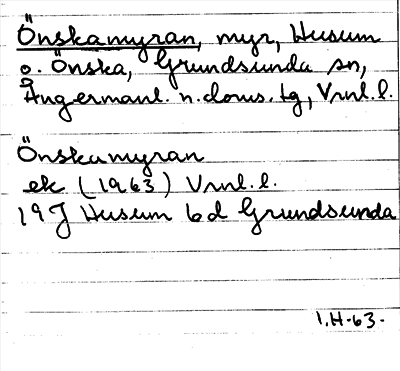 Önskamyran, myr, Husum
o. Önska, Grundsunda sn,
Ångermanl. n. doms. tg, Vrnl. l.
Önskamyran
ek (1963) Vrnl. l.
19J Husum bd Grundsunda
I.H-63-